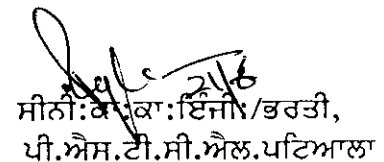 ਸੀਨੀ:ਕਾ:ਕਾ:ਇੰਜੀ:/ਭਰਤੀ,
ਪੀ.ਐਸ.ਟੀ.ਸੀ.ਐਲ.ਪਟਿਆਲਾ